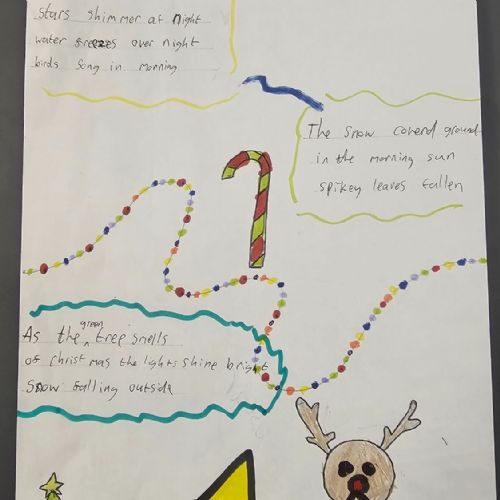 stars shimmer at night
water freezes over night
birds song in morning
The snow coverd ground
in the morning sun
spikey leaves fallen
As the green tree smells
of Christmas the lights shine bright
Snow falling outside